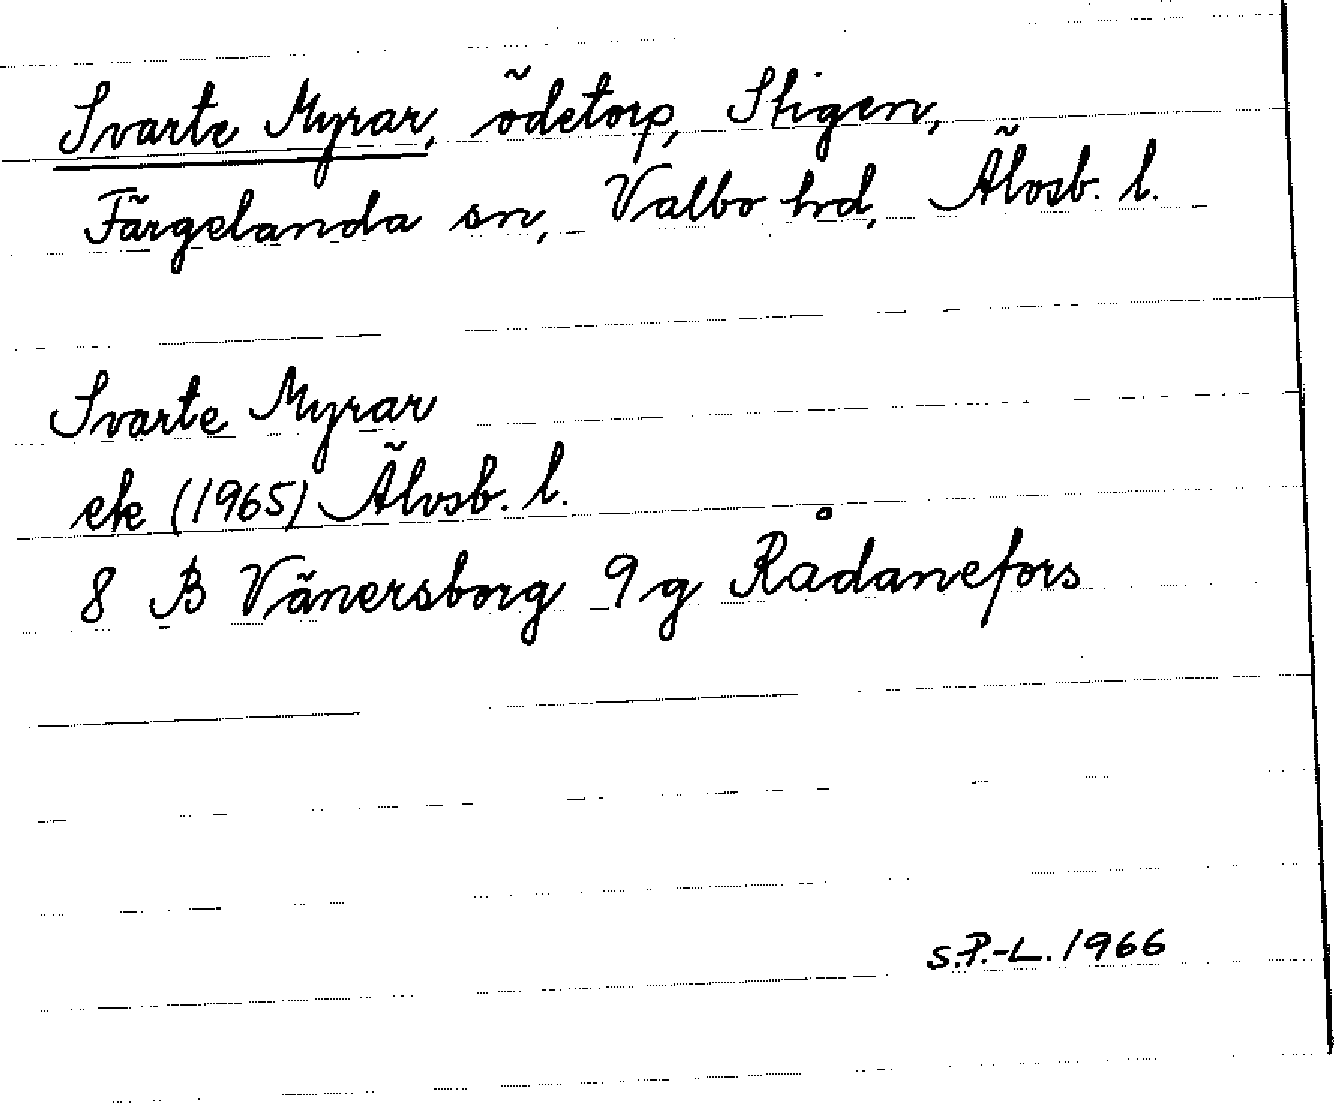 Svarte Myrar, ödetorp, Stigen,
Färgelanda sn, Valbo hrd, Älvsb. l.
Svarte Myrar
ek (1965) Älvsb. l.
8 B Vänersborg 9g Rådanefors
S.P.-L. 1966